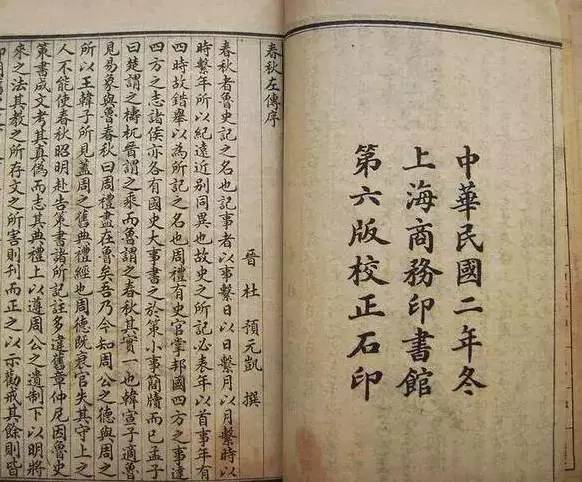 中華民國二年冬
上海商務印書館
第六版校正石印
春秋左傳序
晉 杜 預元凱 撰
春秋者魯史記之名也記事者以事繫日以日繫月以月繫時以
時繫年所以紀遠近別同異也故史之所記必表年以首事年有
四時故錯舉以為所記之名也周禮有史官掌邦國四方之事達
四方之志諸侯亦各有國史大事書之於策小事簡牘而已孟子
曰楚謂之檮杌晉謂之乘而魯謂之春秋其實一也韓宣子適魯
見易象與魯春秋曰周禮盡在魯矣吾乃今知周公之德與周之
所以王韓子所見蓋周之舊典禮經也周德既衰官失其守上之
人不能使春秋昭明赴告策書諸所記註多違舊章仲尼因魯史
策書成文考其真偽而志其典禮上以遵周公之遺制下以明將
來之法其教之所存文之所害則刊而正之以示勸戒其餘則皆